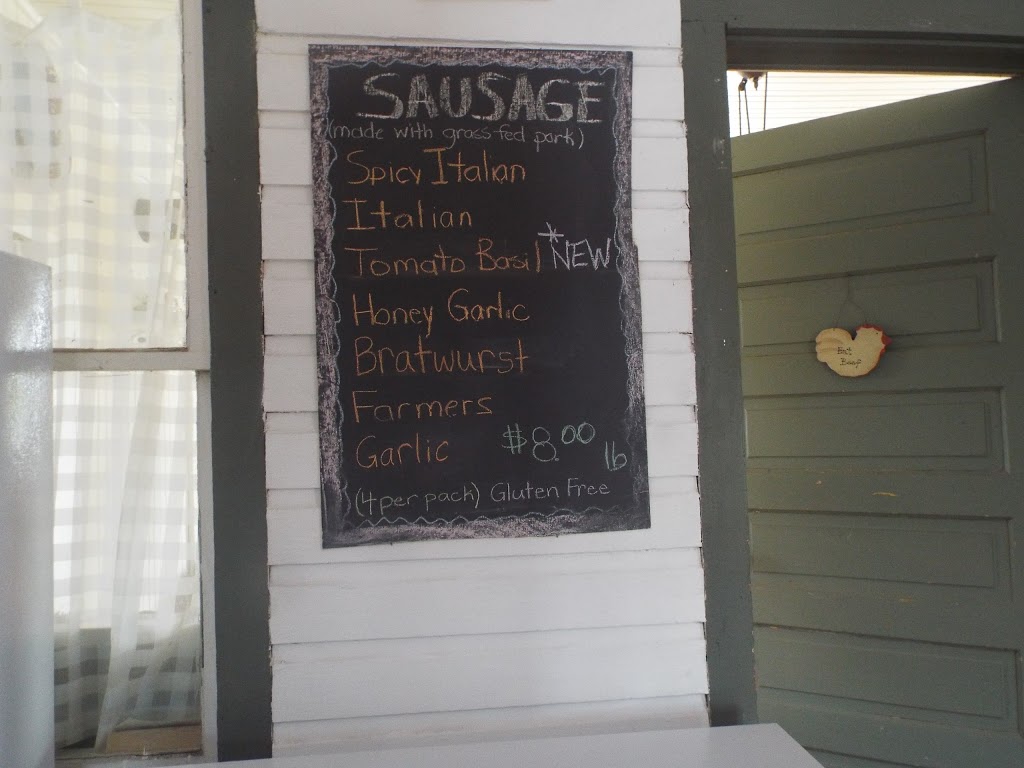 SAUSAGE
(made with grass-fed pork)
Spicy Italian
Italian
Tomato Basil *NEW
Honey Garlic
Bratwurst
Farmers
Garlic $8.00 lb
(4 per pack) Gluten Free